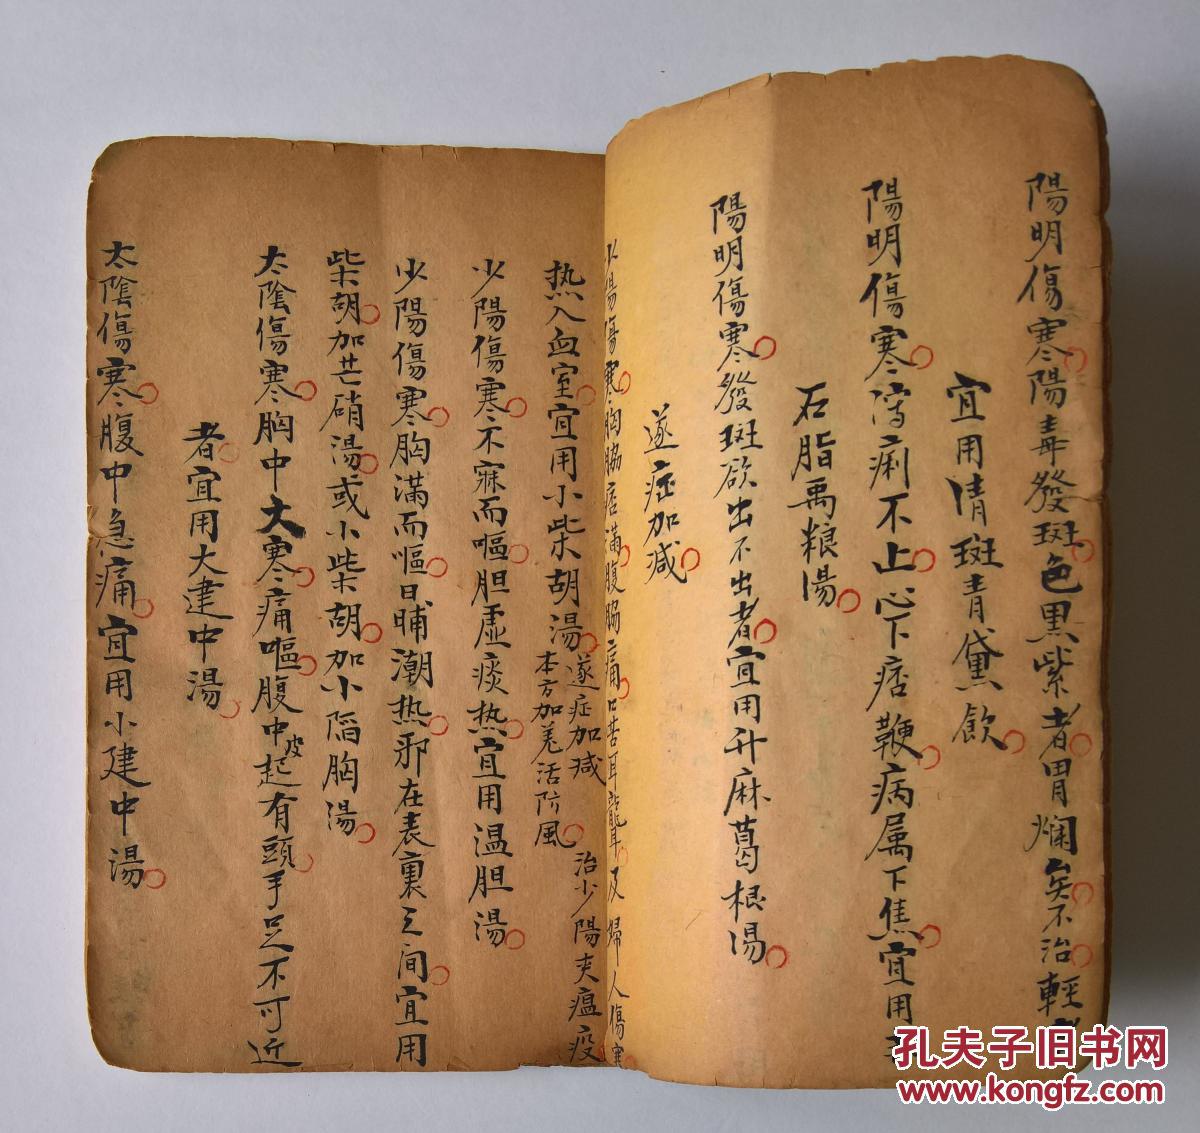 陽明傷寒陽毒發斑色黑紫者胃爛矣不治輕
宜用清斑青黛飲
陽明傷寒瀉痢不止心下痞鞕病属下焦宜用
石脂禹粮湯
陽明傷寒發斑欲出不出者宜用升麻葛根湯
遂症加减
少陽傷寒胸脇痞滿腹脇痛口苦耳聾及婦人傷寒
热入血室宜用小柴胡湯遂症加减
本方加羌活防風
治少陽夾瘟疫
少陽傷寒不寐而嘔胆虚痰热宜用温胆湯
少陽傷寒胸滿而嘔日晡潮热邪在表裏之间宜用
柴胡加芒硝湯或小柴胡加小陷胸湯
太陰傷寒胸中大寒痛嘔腹中皮起有頭手足不可近
者宜用大建中湯
太陰傷寒腹中急痛宜用小建中湯
孔夫子旧书网
www.kongfz.com